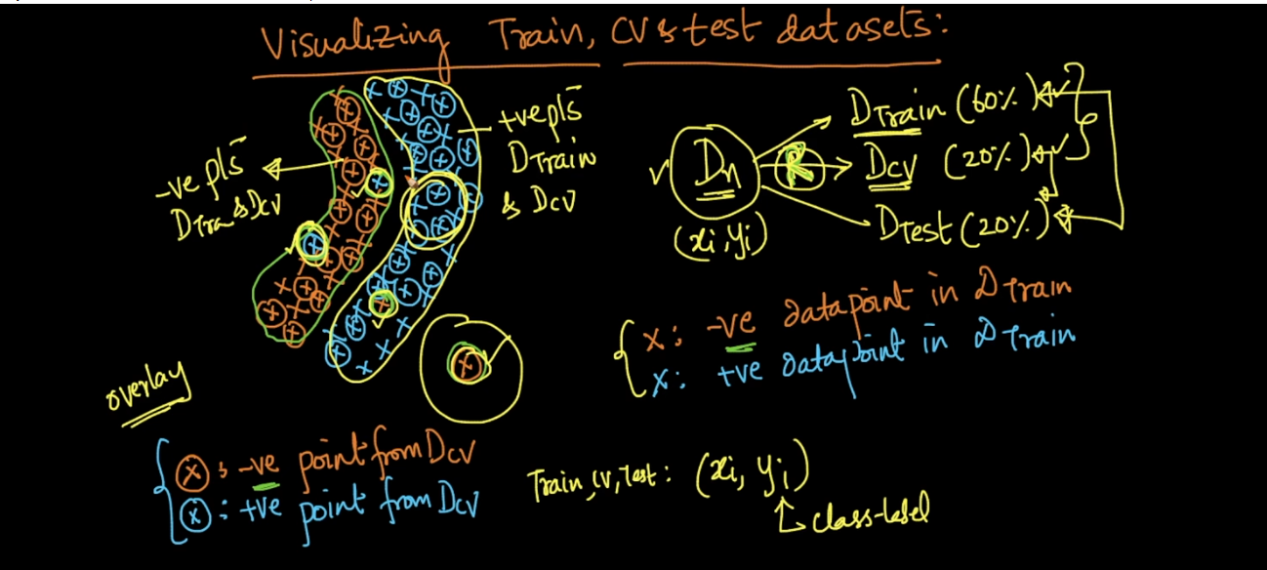 Visualizing Train, CV & test datasets:
-ve pts
DTra & Dcv
+ve pts
DTrain
& Dcv
Dn
(xi, yi)
R
DTrain (60%)
Dcv (20%)
DTest (20%)
x: -ve datapoint in DTrain
x: +ve datapoint in DTrain
overlay
x : -ve point from Dcv
x : +ve point from Dcv
Train, CV, Test: (xi, yi)
class-label